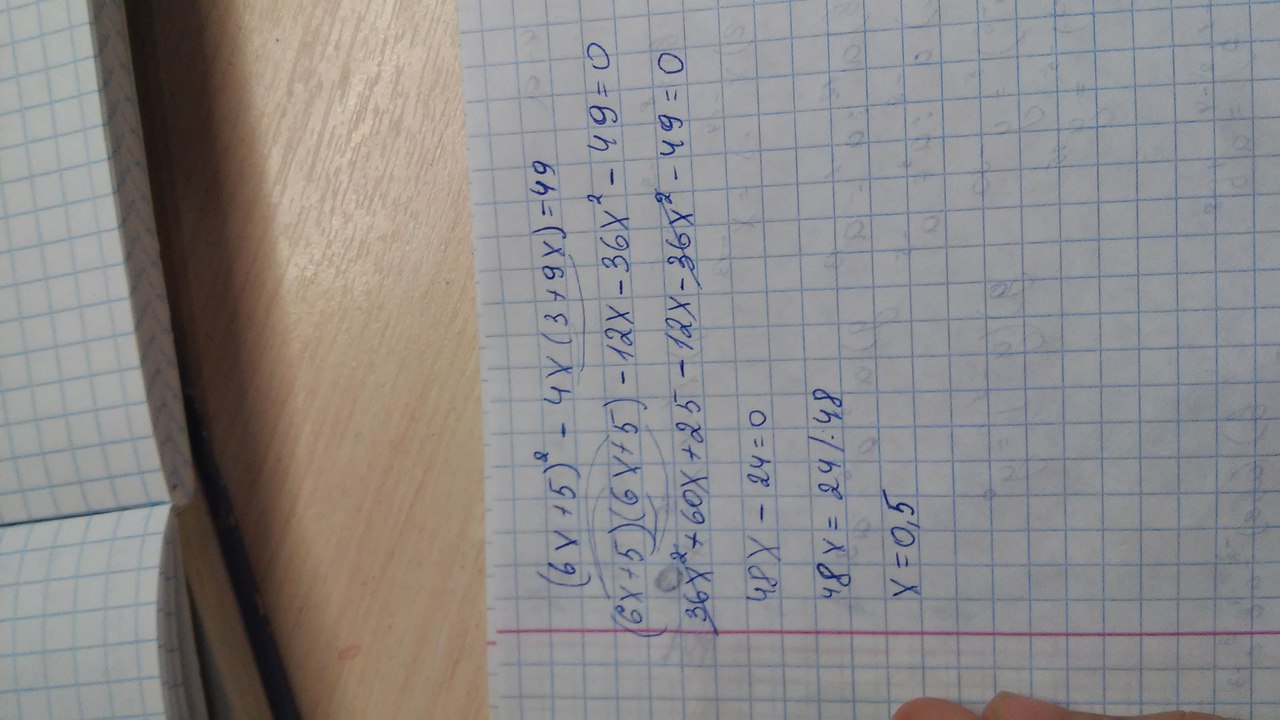 (6x+5)² - 4x(3+9x)=49
(6x+5)(6x+5) - 12x - 36x² - 49=0
36x²+60x+25 - 12x - 36x² - 49=0
48x - 24=0
48x = 24 /:48
x = 0,5